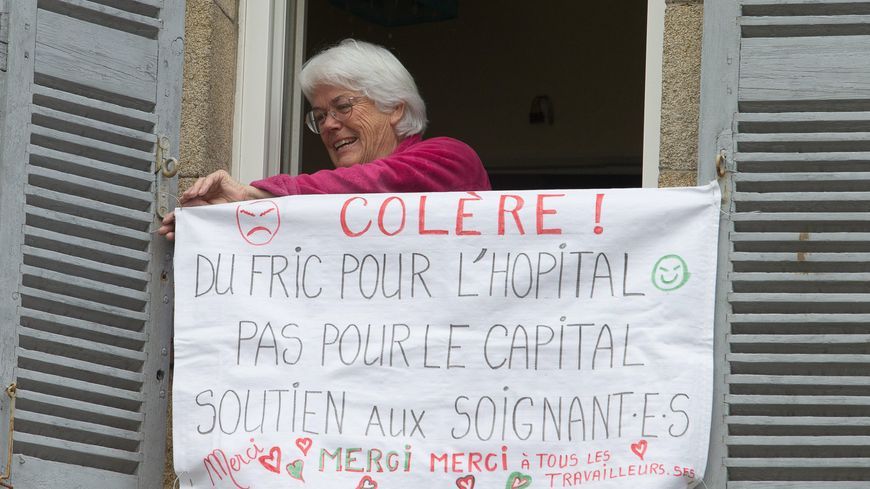 COLÈRE !
DU FRIC POUR L'HOPITAL
PAS POUR LE CAPITAL
SOUTIEN AUX SOIGNANT·E·S
Merci MERCI MERCI À TOUS LES
TRAVAILLEURS.SES